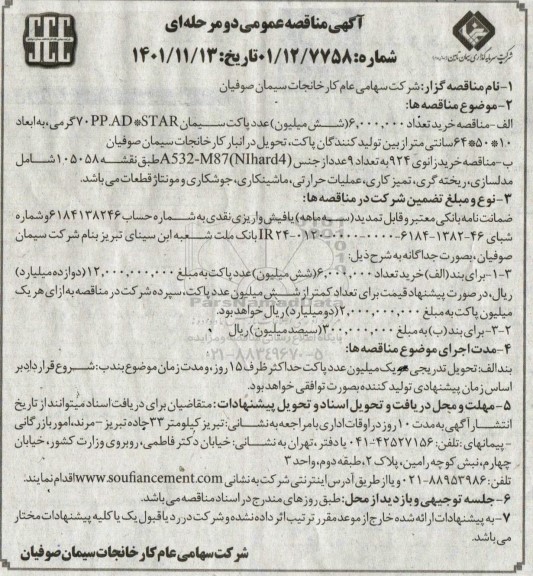 آگهی مناقصه عمومی دو مرحله‌ای
شماره: ۰۱/۱۲/۷۷۵۸ تاریخ: ۱۴۰۱/۱۱/۱۳
SCC
۱- نام مناقصه گزار: شرکت سهامی عام کارخانجات سیمان صوفیان
۲- موضوع مناقصه ها:
الف- مناقصه خرید تعداد ۶,۰۰۰,۰۰۰ (شش میلیون) عدد پاکت سیمان PP.AD*STAR ۷۰ گرمی، به ابعاد
۱۰*۵۰*۶۴ سانتی متر از بین تولیدکنندگان پاکت، تحویل در انبار کارخانجات سیمان صوفیان
ب- مناقصه خرید زانوی ۹۲۴ به تعداد ۹ عدد از جنس A532-M87(NIhard4) طبق نقشه ۱۰۵۰۵۸ شامل
مدلسازی، ریخته گری، تمیز کاری، عملیات حرارتی، ماشینکاری، جوشکاری و مونتاژ قطعات می باشد.
۳- نوع و مبلغ تضمین شرکت در مناقصه ها:
ضمانت نامه بانکی معتبر و قابل تمدید (سه ماهه) یا فیش واریزی نقدی به شماره حساب ۶۱۸۴۱۳۸۲۴۶ و شماره
شبای IR ۲۴-۰۱۲۰-۰۰۰۰-۰۰۰۰-۶۱۸۴-۱۳۸۲-۴۶ بانک ملت شعبه ابن سینای تبریز بنام شرکت سیمان
صوفیان، بصورت جداگانه به شرح ذیل:
۳-۱- برای بند (الف) خرید تعداد ۶,۰۰۰,۰۰۰ (شش میلیون) عدد پاکت به مبلغ ۱۲,۰۰۰,۰۰۰,۰۰۰ (دوازده میلیارد)
ریال، در صورت پیشنهاد قیمت برای تعداد کمتر از شش میلیون عدد پاکت، سپرده شرکت در مناقصه به ازای هر یک
میلیون پاکت به مبلغ ۲,۰۰۰,۰۰۰,۰۰۰ (دو میلیارد) ریال خواهد بود.
۳-۲- برای بند (ب) به مبلغ ۳۰۰,۰۰۰,۰۰۰ (سیصد میلیون) ریال
۴- مدت اجرای موضوع مناقصه ها:
بند الف: تحویل تدریجی هر یک میلیون عدد پاکت حداکثر ظرف ۱۵ روز، و مدت زمان موضوع بند ب: شروع قرارداد بر
اساس زمان پیشنهادی تولید کننده بصورت توافقی خواهد بود.
۵- مهلت و محل دریافت و تحویل اسناد و تحویل پیشنهادات: متقاضیان برای دریافت اسناد میتوانند از تاریخ
انتشار آگهی به مدت ۱۰ روز در اوقات اداری با مراجعه به نشانی: تبریز کیلومتر ۳۳ جاده تبریز - مرند، امور بازرگانی
- پیمانهای: تلفن: ۴۲۵۲۷۱۵۶-۰۴۱ یا دفتر، تهران به نشانی: خیابان دکتر فاطمی، روبروی وزارت کشور، خیابان
چهارم، نبش کوچه رامین، پلاک ۲، طبقه دوم، واحد ۳
تلفن: ۸۸۹۵۳۹۸۶-۰۲۱ و یا از طریق آدرس اینترنتی شرکت به نشانی www.soufiancement.com اقدام نمایند.
۶- جلسه توجیهی و بازدید از محل: طبق روز های مندرج در اسناد مناقصه می باشد.
۷- به پیشنهادات ارائه شده خارج از موعد مقرر ترتیب اثر داده نشده و شرکت در رد یا قبول یک یا کلیه پیشنهادات مختار
می باشد.
شرکت سهامی عام کارخانجات سیمان صوفیان
ParsNamadData
۰۲۱-۸۸۳۴۹۶۷۰-۵